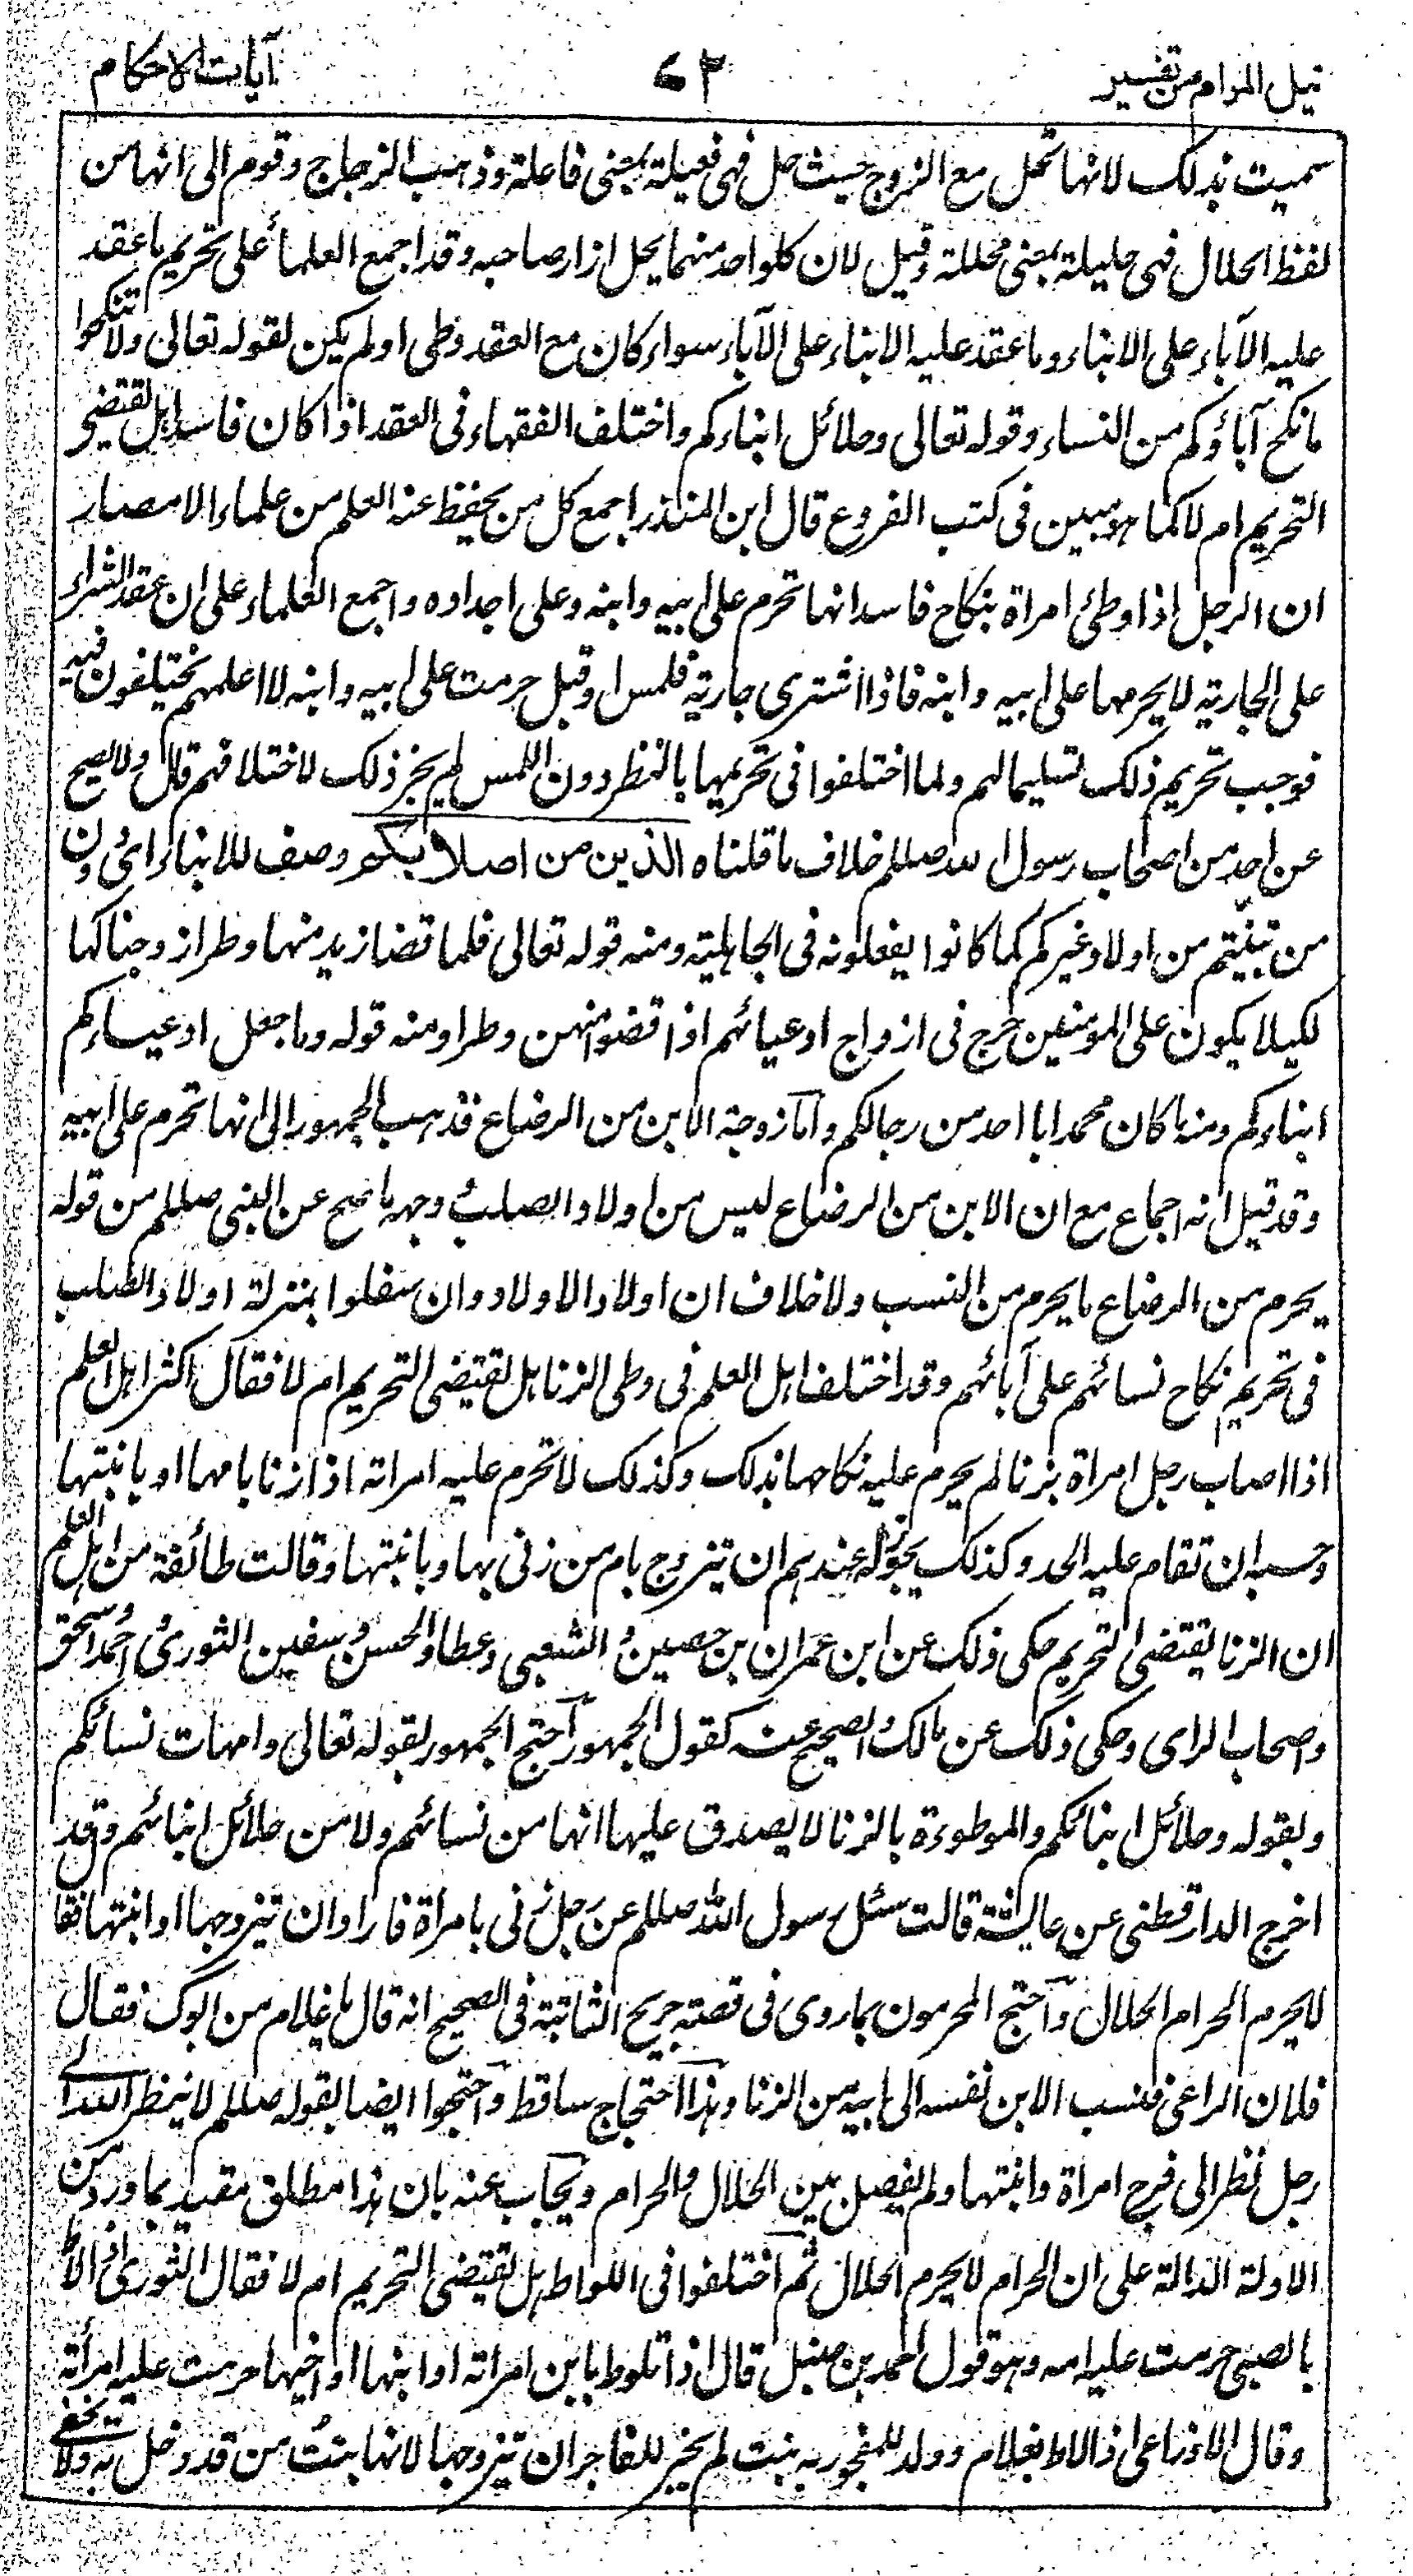 نيل المرام من تفسير ٦٣ آيات الاحكام
سميت بذلك لانها تحل مع الزوج حيث حل فهى فعيلة بمعنى فاعلة وذهب الزجاج وقوم الى انها من
لفظ الحلال فهى حليلة بمعنى محللة وقيل لان كلواحد منهما يحل ازار صاحبه وقد اجمع العلماء على تحريم ما عقد
عليه الآباء على الابناء وما عقد عليه الابناء على الآباء سواء كان مع العقد وطى او لم يكن لقوله تعالى ولا تنكحوا
ما نكح آباؤكم من النساء وقوله تعالى وحلائل ابناءكم واختلف الفقهاء فى العقد اذا كان فاسدا هل يقتضى
التحريم ام لا كما هو مبين فى كتب الفروع قال ابن المنذر اجمع كل من يحفظ عنه العلم من علماء الامصار
ان الرجل اذا وطئ امراة بنكاح فاسد انها تحرم على ابيه وابنه وعلى اجداده واجمع العلماء على ان عقد الشراء
على الجارية لا يحرمها على ابيه وابنه فاذا اشترى جارية فلمس او قبل حرمت على ابيه وابنه لا اعلمهم يختلفون فيه
فوجب تحريم ذلك تسليما لهم ولما اختلفوا فى تحريمها بالنظر دون اللمس لم يجز ذلك لاختلافهم قال ولا يصح
عن احد من اصحاب رسول الله صللم خلاف ما قلناه الذين من اصلابكم وصف للابناء اى دون
من تبنيتم من اولاد غيركم كما كانوا يفعلونه فى الجاهلية ومنه قوله تعالى فلما قضا زيد منها وطرا زوجناكها
لكيلا يكون على المؤمنين حرج فى ازواج ادعيائهم اذا قضوا منهن وطرا ومنه قوله وما جعل ادعياءكم
ابناءكم ومنه ما كان محمد ابا احد من رجالكم واما زوجة الابن من الرضاع فذهب الجمهور الى انها تحرم على ابيه
وقد قيل انه اجماع مع ان الابن من الرضاع ليس من اولاد الصلب وجهه ما صح عن النبى صللم من قوله
يحرم من الرضاع ما يحرم من النسب ولا خلاف ان اولاد الاولاد وان سفلوا بمنزلة اولاد الصلب
فى تحريم نكاح نسائهم على آبائهم وقد اختلف اهل العلم فى وطى الزنا هل يقتضى التحريم ام لا فقال اكثر اهل العلم
اذا اصاب رجل امراة بزنا لم يحرم عليه نكاحها بذلك وكذلك لا تحرم عليه امراته اذا زنا بامها او بابنتها
وحسبه ان تقام عليه الحد وكذلك يجوز له عندهم ان يتزوج بام من زنى بها وبابنتها وقالت طائفة من اهل العلم
ان الزنا يقتضى التحريم حكى ذلك عن ابن عمران بن حصين والشعبى وعطا والحسن وسفين الثورى واحمد واسحق
واصحاب الراى وحكى ذلك عن مالك والصحيح عنه كقول الجمهور احتج الجمهور بقوله تعالى وامهات نسائكم
وبقوله وحلائل ابنائكم والموطوءة بالزنا لا يصدق عليها انها من نسائهم ولا من حلائل ابنائهم وقد
اخرج الدارقطنى عن عايشة قالت سئل رسول الله صللم عن رجل زنى بامراة فاراد ان يتزوجها او ابنتها فقا
لا يحرم الحرام الحلال واحتج المحرمون بما روى فى قصة جريح الثابتة فى الصحيح انه قال يا غلام من ابوك فقال
فلان الراعى فنسب الابن نفسه الى ابيه من الزنا وهذا احتجاج ساقط واحتجوا ايضا بقوله صللم لا ينظر الله الى
رجل نظر الى فرج امراة وابنتها ولم يفصل بين الحلال والحرام ويجاب عنه بان هذا مطلق مقيد بما ورد من
الادلة الدالة على ان الحرام لا يحرم الحلال ثم اختلفوا فى اللواط هل يقتضى التحريم ام لا فقال الثورى اذا لاط
بالصبى حرمت عليه امه وهو قول احمد بن حنبل قال اذا تلوط بابن امراته او ابنها او اخيها حرمت عليه امرأته
وقال الاوزاعى اذا لاط بغلام وولد للمفجور به بنت لم يجز للفاجر ان يتزوجها لانها بنت من قد دخل به ولا يخفى